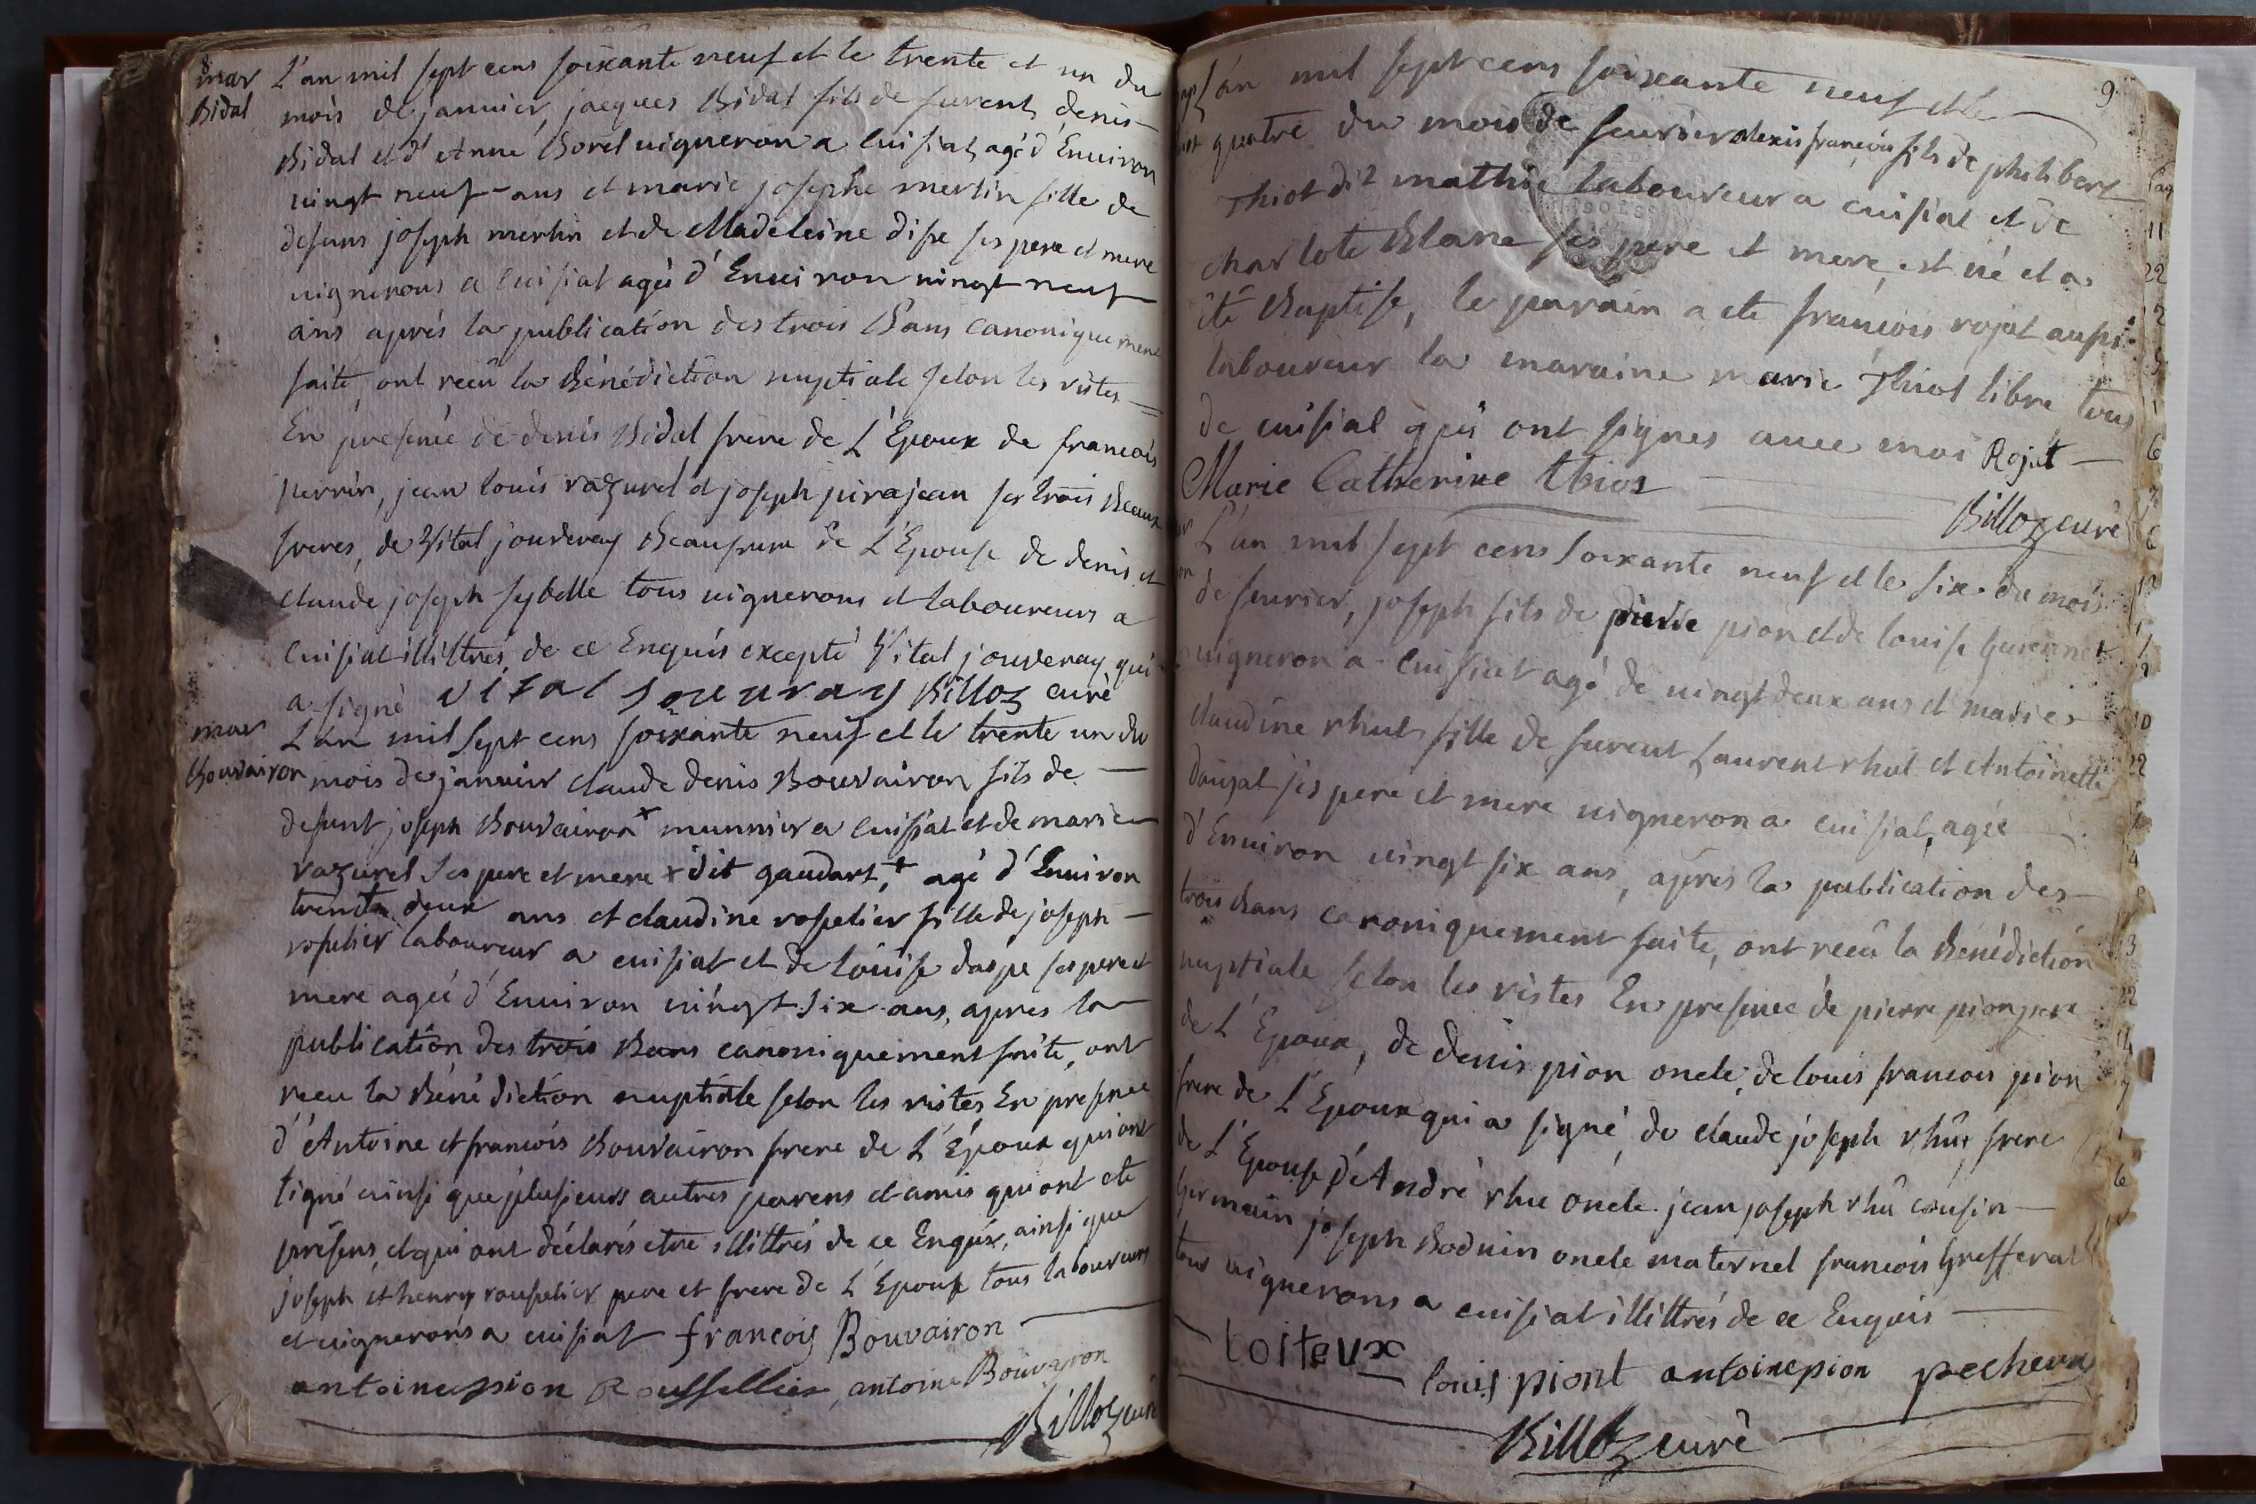 8
mar
Bidal
L'an mil sept cens soixante neuf et le trente et un du
mois de janvier, jacques Bidal fils de furent denis
Bidal et d'Anne Borel uigneron a Cuisiat, agé d'Enuiron
uingt neuf ans et marie josephe merlin fille de
defuns joseph merlin et de Madeleine dise ses pere et mere
uignerons a Cuisiat agée d'Enuiron uingt neuf
ans aprés la publication des trois Bans canoniquement
faite, ont recû la Bénédiction nuptiale selon les rites
En presence de denis Bidal frere de L'Epoux de francois
perrin, jean louis razurel et joseph pirajean ses trois Beaux
freres, de Vital jouveray Beaufrere de L'Epouse de denis et
claude joseph sybelle tous uignerons et laboureurs a
Cuisiat illiltrés de ce Enquis excepté Vital jouveray qui
a signé vital jouuray Billoz curé
mar
Bouvairon
L'an mil sept cens soixante neuf et le trente un du
mois de janvier claude denis Bouvairon fils de
defunt joseph Bouvairon + munnier a Cuisiat et de marie
razurel ses pere et mere + dit gaudart, + agé d'Enuiron
trente deux ans et claudine rosselier fille de joseph
rosselier laboureur a cuisiat et de louise daspe ses pere et
mere agée d'Enuiron uingt six ans, apres la
publication des trois Bans canoniquement faite, ont
recu la Béné diction nuptiale selon les ristes En presence
d'Antoine et francois Bouvairon frere de L'Epoux qui ont
signé ainsi que plusieurs autres parens et amis qui ont eté
présens, et qui ont déclarés etre illittrés de ce Enquis, ainsi que
joseph et henry rousselier pere et frere de L'Epouse tous laboureurs
et uignerons a cuisiat françois Bouvairon
antoine pion Roussellier antoine Bouvayron
Billoz curé
9
L'an mil sept cens soixante neuf et le
quatre du mois de feurier alexis francois fils de philibert
Thiot dit mathie laboureur a cuisiat et de
charlote Blanc ses pere et mere, est né et a
été Baptise, le parain a ete francois rojat aussi
laboureur la maraine marie Thiot libre tous
de cuisiat qui ont signes auec moi Rojat
Marie Catherine thiot
Billoz curé
L'an mil sept cens soixante neuf et le six du mois
de feurier, joseph fils de pierre pion et de louise
uigneron a Cuisiat agé de uingt deux ans et marie
claudine rhut fille de furent Laurent rhut et Antoinette
ses pere et mere uigneron a cuisiat, agée
d'Enuiron uingt six ans, apres la publication des
trois Bans canoniquement faite, ont recû la Bénédiction
nuptiale selon les ristes En presence de pierre pion pere
de L'Epoux, de denis pion oncle, de louis francois pion
frere de L'Epoux qui a signé, de claude joseph rhût frere
de L'Epouse, d'André rhu oncle jean joseph rhû cousin
germain joseph Boduin oncle maternel francois
tous uignerons a cuisiat illiltrés de ce Enquis
loiteux louis piont antoine pion pecheux
Billoz curé